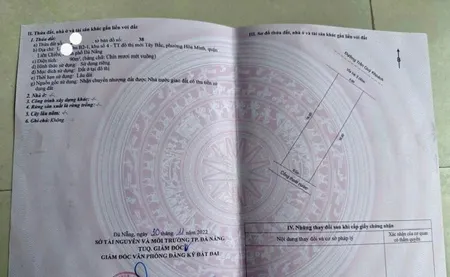 II. Thửa đất, nhà ở và tài sản khác gắn liền với đất
1. Thửa đất:
a) Thửa đất số: tờ bản đồ số: 38
b) Địa chỉ: B2-1, khu số 4 - TT đô thị mới Tây Bắc, phường Hòa Minh, quận
Liên Chiểu, thành phố Đà Nẵng
c) Diện tích: 90m², (bằng chữ: Chín mươi mét vuông)
d) Hình thức sử dụng: Sử dụng riêng
đ) Mục đích sử dụng: Đất ở tại đô thị
e) Thời hạn sử dụng: Lâu dài
g) Nguồn gốc sử dụng: Nhận chuyển nhượng đất được Nhà nước giao đất có thu tiền sử
dụng đất
2. Nhà ở: -/-
3. Công trình xây dựng khác: -/-
4. Rừng sản xuất là rừng trồng: -/-
5. Cây lâu năm: -/-
6. Ghi chú: Không
Đà Nẵng, ngày 30 tháng năm 2022
SỞ TÀI NGUYÊN VÀ MÔI TRƯỜNG TP. ĐÀ NẴNG
TUQ. GIÁM ĐỐC
GIÁM ĐỐC VĂN PHÒNG ĐĂNG KÝ ĐẤT ĐAI
III. Sơ đồ thửa đất, nhà ở và tài sản khác gắn liền với đất
IV. Những thay đổi sau khi cấp giấy chứng nhận
Nội dung thay đổi và cơ sở pháp lý
Xác nhận của cơ quan
có thẩm quyền